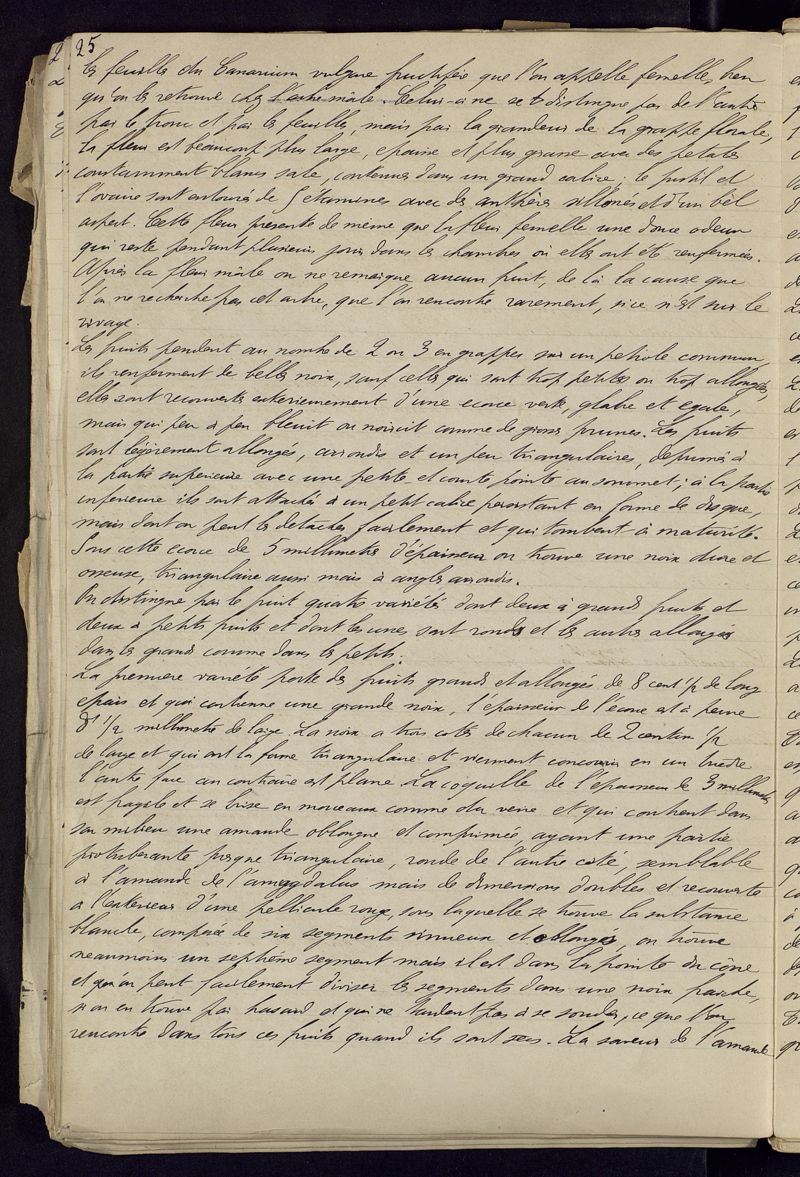 25
les feuilles du Canarium vulgare fructifère que l'on appelle femelle, bien
qu'on les retrouve chez l'arbre mâle. Celui-ci ne se distingue pas de l'autre
par le tronc et par les feuilles, mais par la grandeur de la grappe florale,
la fleur est beaucoup plus large, epaisse et plus grasse avec des petales
constamment blancs sale, contenues dans un grand calice; le pistil et
l'ovaire sont entourés de 5 étamines avec des anthères sillonés et d'un bel
aspect. Cette fleur presente de même que la fleur femelle une douce odeur
qui reste pendant plusieurs jours dans les chambres où elles ont été renfermées.
Après la fleur mâle on ne remarque aucun fruit, de là la cause que
l'on ne recherche pas cet arbre, que l'on rencontre rarement, si ce n'est sur le
rivage.
Les fruits pendent au nombre de 2 ou 3 en grappes sur un petiole commun,
ils renferment de belles noix, sauf celles qui sont trop petites ou trop allongées,
elles sont recouverts exterieurement d'une ecorce verte, glabre et egale,
mais qui peu à peu bleuit ou noircit comme de grosses prunes. Les fruits
sont légèrement allongés, arrondis et un peu triangulaires, deprimés à
la partie superieure avec une petite et courte pointe au sommet; à la partie
inferieure ils sont attachés à un petit calice persistant en forme de disque,
mais dont on peut les detacher facilement et qui tombent à maturité.
Sous cette ecorce de 5 millimetres d'épaisseur on trouve une noix dure et
osseuse, triangulaire aussi mais à angles arrondis.
On distingue par le fruit quatre variétés dont deux à grands fruits et
deux à petits fruits et dont les unes sont ronds et les autres allongés
dans les grands comme dans les petits.
La premiere variété porte des fruits grands et allongés de 8 cent 1/2 de long
epais et qui contienne une grande noix, l'épaisseur de l'écorce est à peine
8 1/2 millimetre de large. La noix a trois cotés de chacun de 2 centim 1/2
de large et qui ont la forme triangulaire et viennent concourir en un
l'autre face au contraire est plane. La coquille de l'épaisseur de 3 millimetres
est fragile et se brise en morceaux comme du verre et qui contient dans
son milieu une amande oblongue et comprimée, ayant une partie
protuberante presque triangulaire, ronde de l'autre coté, semblable
à l'amande de l'amygdalus mais de dimensions doubles et recouverte
à l'exterieur d'une pellicule rouge, sous laquelle se trouve la substance
blanche, composée de six segments sinueux et oblongs, on trouve
neanmoins un septième segment mais il est dans la pointe du cône
et qu'on peut facilement diviser les segments dans une noix fraiche,
si on en trouve par hasard et qui ne tardent pas à se souder, ce que l'on
rencontre dans tous ces fruits quand ils sont secs. La saveur de l'amande